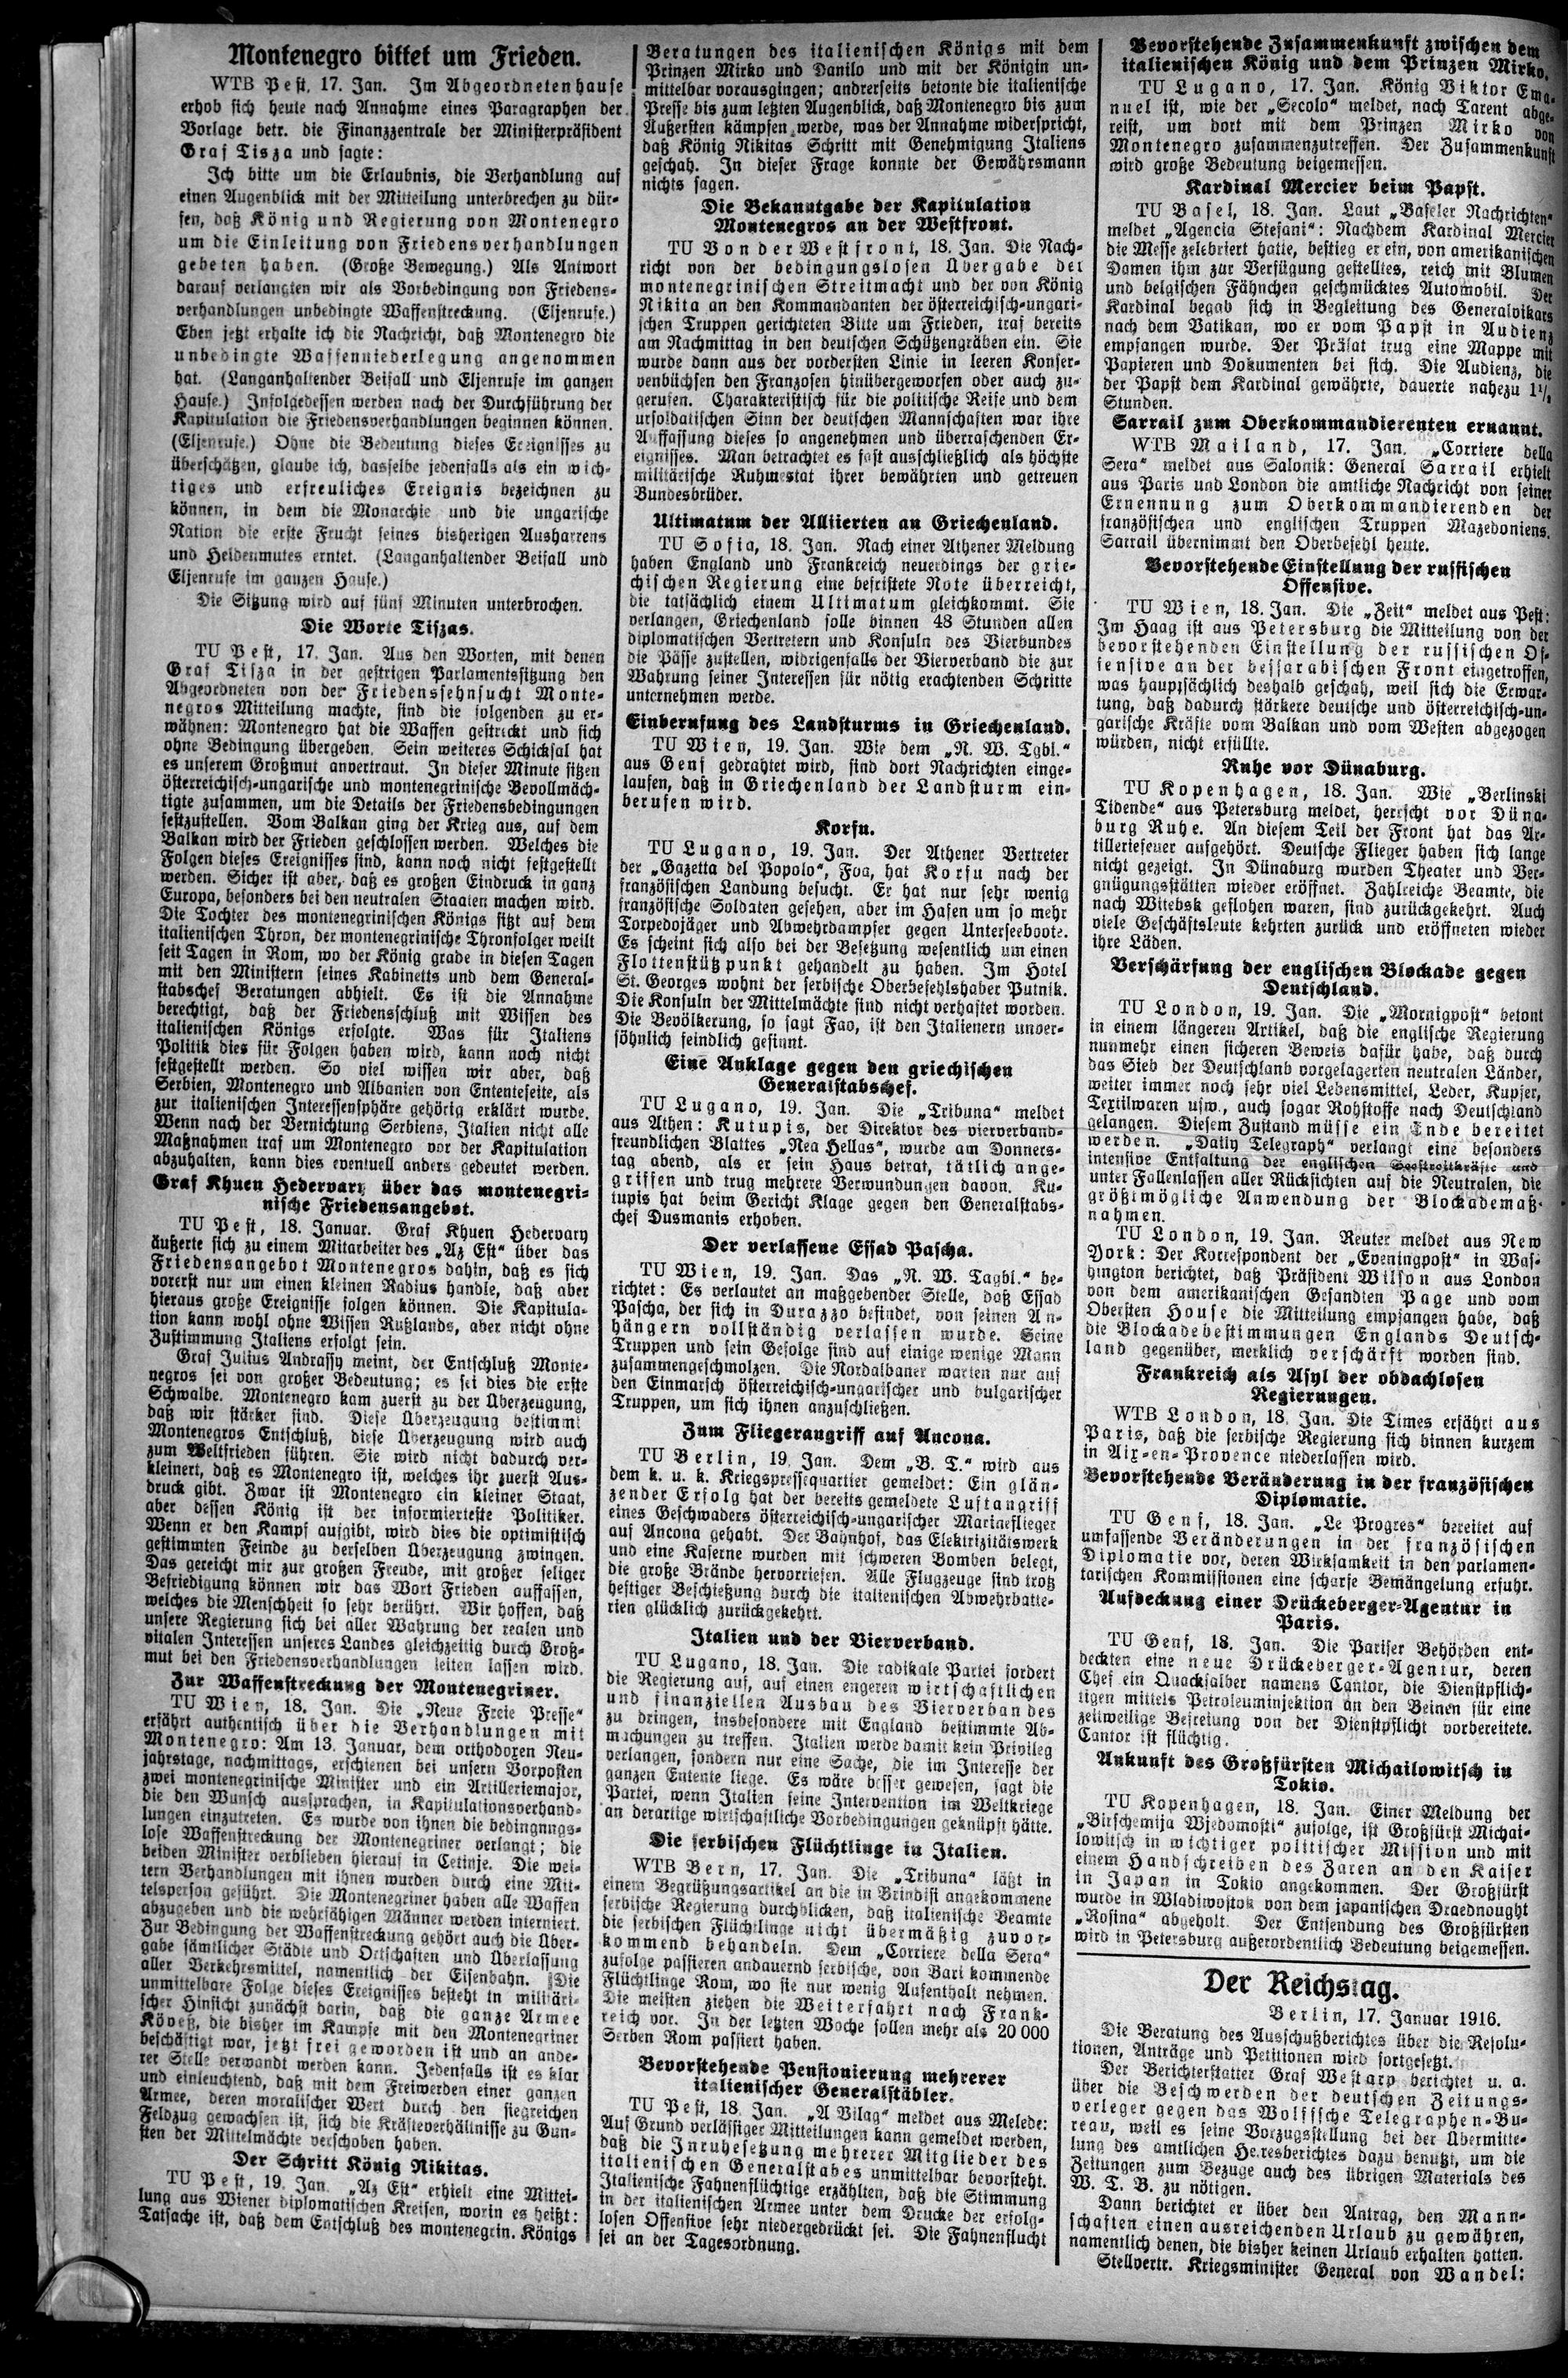 Montenegro bittet um Frieden.
WTB Pest, 17. Jan. Im Abgeordnetenhause
erhob sich heute nach Annahme eines Paragraphen der
Vorlage betr. die Finanzzentrale der Ministerpräsident
Graf Tisza und sagte:
Ich bitte um die Erlaubnis, die Verhandlung auf
einen Augenblick mit der Mitteilung unterbrechen zu dür-
fen, daß König und Regierung von Montenegro
um die Einleitung von Friedensverhandlungen
gebeten haben. (Große Bewegung.) Als Antwort
darauf verlangten wir als Vorbedingung von Friedens-
verhandlungen unbedingte Waffenstreckung. (Eljenrufe.)
Eben jetzt erhalte ich die Nachricht, daß Montenegro die
unbedingte Waffenniederlegung angenommen
hat. (Langanhaltender Beifall und Eljenrufe im ganzen
Hause.) Infolgedessen werden nach der Durchführung der
Kapitulation die Friedensverhandlungen beginnen können.
(Eljenrufe.) Ohne die Bedeutung dieses Ereignisses zu
überschätzen, glaube ich, dasselbe jedenfalls als ein wich-
tiges und erfreuliches Ereignis bezeichnen zu
können, in dem die Monarchie und die ungarische
Nation die erste Frucht seines bisherigen Ausharrens
und Heldenmutes erntet. (Langanhaltender Beifall und
Eljenrufe im ganzen Hause.)
Die Sitzung wird auf fünf Minuten unterbrochen.
Die Worte Tiszas.
TU Pest, 17. Jan. Aus den Worten, mit denen
Graf Tisza in der gestrigen Parlamentssitzung den
Abgeordneten von der Friedenssehnsucht Monte-
negros Mitteilung machte, sind die folgenden zu er-
wähnen: Montenegro hat die Waffen gestreckt und sich
ohne Bedingung übergeben. Sein weiteres Schicksal hat
es unserem Großmut anvertraut. In dieser Minute sitzen
österreichisch-ungarische und montenegrinische Bevollmäch-
tigte zusammen, um die Details der Friedensbedingungen
festzustellen. Vom Balkan ging der Krieg aus, auf dem
Balkan wird der Frieden geschlossen werden. Welches die
Folgen dieses Ereignisses sind, kann noch nicht festgestellt
werden. Sicher ist aber, daß es großen Eindruck in ganz
Europa, besonders bei den neutralen Staaten machen wird.
Die Tochter des montenegrinischen Königs sitzt auf dem
italienischen Thron, der montenegrinische Thronfolger weilt
seit Tagen in Rom, wo der König grade in diesen Tagen
mit den Ministern seines Kabinetts und dem General-
stabschef Beratungen abhielt. Es ist die Annahme
berechtigt, daß der Friedensschluß mit Wissen des
italienischen Königs erfolgte. Was für Italiens
Politik dies für Folgen haben wird, kann noch nicht
festgestellt werden. So viel wissen wir aber, daß
Serbien, Montenegro und Albanien von Ententeseite, als
zur italienischen Interessensphäre gehörig erklärt wurde.
Wenn nach der Vernichtung Serbiens, Italien nicht alle
Maßnahmen traf um Montenegro vor der Kapitulation
abzuhalten, kann dies eventuell anders gedeutet werden.
Graf Khuen Hedervary über das montenegri-
nische Friedensangebot.
TU Pest, 18. Januar. Graf Khuen Hedervary
äußerte sich zu einem Mitarbeiter des „Az Est“ über das
Friedensangebot Montenegros dahin, daß es sich
vorerst nur um einen kleinen Radius handle, daß aber
hieraus große Ereignisse folgen können. Die Kapitula-
tion kann wohl ohne Wissen Rußlands, aber nicht ohne
Zustimmung Italiens erfolgt sein.
Graf Julius Andrassy meint, der Entschluß Monte-
negros sei von großer Bedeutung; es sei dies die erste
Schwalbe. Montenegro kam zuerst zu der Überzeugung,
daß wir stärker sind. Diese Überzeugung bestimmt
Montenegros Entschluß, diese Überzeugung wird auch
zum Weltfrieden führen. Sie wird nicht dadurch ver-
kleinert, daß es Montenegro ist, welches ihr zuerst Aus-
druck gibt. Zwar ist Montenegro ein kleiner Staat,
aber dessen König ist der informierteste Politiker.
Wenn er den Kampf aufgibt, wird dies die optimistisch
gestimmten Feinde zu derselben Überzeugung zwingen.
Das gereicht mir zur großen Freude, mit großer seliger
Befriedigung können wir das Wort Frieden auffassen,
welches die Menschheit so sehr berührt. Wir hoffen, daß
unsere Regierung sich bei aller Wahrung der realen und
vitalen Interessen unseres Landes gleichzeitig durch Groß-
mut bei den Friedensverhandlungen leiten lassen wird.
Zur Waffenstreckung der Montenegriner.
TU Wien, 18. Jan. Die „Neue Freie Presse“
erfährt authentisch über die Verhandlungen mit
Montenegro: Am 13. Januar, dem orthodoxen Neu-
jahrstage, nachmittags, erschienen bei unsern Vorposten
zwei montenegrinische Minister und ein Artilleriemajor,
die den Wunsch aussprachen, in Kapitulationsverhand-
lungen einzutreten. Es wurde von ihnen die bedingungs-
lose Waffenstreckung der Montenegriner verlangt; die
beiden Minister verblieben hierauf in Cetinje. Die wei-
tern Verhandlungen mit ihnen wurden durch eine Mit-
telsperson geführt. Die Montenegriner haben alle Waffen
abzugeben und die wehrfähigen Männer werden interniert.
Zur Bedingung der Waffenstreckung gehört auch die Über-
gabe sämtlicher Städte und Ortschaften und Überlassung
aller Verkehrsmittel, namentlich der Eisenbahn. Die
unmittelbare Folge dieses Ereignisses besteht in militäri-
scher Hinsicht zunächst darin, daß die ganze Armee
Köveß, die bisher im Kampfe mit den Montenegriner
beschäftigt war, jetzt frei geworden ist und an ande-
rer Stelle verwandt werden kann. Jedenfalls ist es klar
und einleuchtend, daß mit dem Freiwerden einer ganzen
Armee, deren moralischer Wert durch den siegreichen
Feldzug gewachsen ist, sich die Kräfteverhältnisse zu Gun-
sten der Mittelmächte verschoben haben.
Der Schritt König Nikitas.
TU Pest, 19. Jan. „Az Est“ erhielt eine Mittei-
lung aus Wiener diplomatischen Kreisen, worin es heißt:
Tatsache ist, daß dem Entschluß des montenegrin. Königs
Beratungen des italienischen Königs mit dem
Prinzen Mirko und Danilo und mit der Königin un-
mittelbar vorausgingen; andrerseits betonte die italienische
Presse bis zum letzten Augenblick, daß Montenegro bis zum
Äußersten kämpfen werde, was der Annahme widerspricht,
daß König Nikitas Schritt mit Genehmigung Italiens
geschah. In dieser Frage konnte der Gewährsmann
nichts sagen.
Die Bekanntgabe der Kapitulation
Montenegros an der Westfront.
TU Von der Westfront, 18. Jan. Die Nach-
richt von der bedingungslosen Übergabe der
montenegrinischen Streitmacht und der von König
Nikita an den Kommandanten der österreichisch-ungari-
schen Truppen gerichteten Bitte um Frieden, traf bereits
am Nachmittag in den deutschen Schützengräben ein. Sie
wurde dann aus der vordersten Linie in leeren Konser-
venbüchsen den Franzosen hinübergeworfen oder auch zu-
gerufen. Charakteristisch für die politische Reife und dem
ursoldatischen Sinn der deutschen Mannschaften war ihre
Auffassung dieses so angenehmen und überraschenden Er-
eignisses. Man betrachtet es fast ausschließlich als höchste
militärische Ruhmestat ihrer bewährten und getreuen
Bundesbrüder.
Ultimatum der Alliierten an Griechenland.
TU Sofia, 18. Jan. Nach einer Athener Meldung
haben England und Frankreich neuerdings der grie-
chischen Regierung eine befristete Note überreicht,
die tatsächlich einem Ultimatum gleichkommt. Sie
verlangen, Griechenland solle binnen 48 Stunden allen
diplomatischen Vertretern und Konsuln des Vierbundes
die Pässe zustellen, widrigenfalls der Vierverband die zur
Wahrung seiner Interessen für nötig erachtenden Schritte
unternehmen werde.
Einberufung des Landsturms in Griechenland.
TU Wien, 19. Jan. Wie dem „N. W. Tgbl.“
aus Genf gedrahtet wird, sind dort Nachrichten einge-
laufen, daß in Griechenland der Landsturm ein-
berufen wird.
Korfu.
TU Lugano, 19. Jan. Der Athener Vertreter
der „Gazetta del Popolo“, Foa, hat Korfu nach der
französischen Landung besucht. Er hat nur sehr wenig
französische Soldaten gesehen, aber im Hafen um so mehr
Torpedojäger und Abwehrdampfer gegen Unterseeboote.
Es scheint sich also bei der Besetzung wesentlich um einen
Flottenstützpunkt gehandelt zu haben. Im Hotel
St. Georges wohnt der serbische Oberbefehlshaber Putnik.
Die Konsuln der Mittelmächte sind nicht verhaftet worden.
Die Bevölkerung, so sagt Fao, ist den Italienern unver-
söhnlich feindlich gesinnt.
Eine Anklage gegen den griechischen
Generalstabschef.
TU Lugano, 19. Jan. Die „Tribuna“ meldet
aus Athen: Kutupis, der Direktor des vierverband-
freundlichen Blattes „Nea Hellas“, wurde am Donners-
tag abend, als er sein Haus betrat, tätlich ange-
griffen und trug mehrere Verwundungen davon. Ku-
tupis hat beim Gericht Klage gegen den Generalstabs-
chef Dusmanis erhoben.
Der verlassene Essad Pascha.
TU Wien, 19. Jan. Das „N. W. Tagbl.“ be-
richtet: Es verlautet an maßgebender Stelle, daß Essad
Pascha, der sich in Durazzo befindet, von seinen An-
hängern vollständig verlassen wurde. Seine
Truppen und sein Gefolge sind auf einige wenige Mann
zusammengeschmolzen. Die Nordalbaner warten nur auf
den Einmarsch österreichisch-ungarischer und bulgarischer
Truppen, um sich ihnen anzuschließen.
Zum Fliegerangriff auf Ancona.
TU Berlin, 19. Jan. Dem „B. T.“ wird aus
dem k. u. k. Kriegspressequartier gemeldet: Ein glän-
zender Erfolg hat der bereits gemeldete Luftangriff
eines Geschwaders österreichisch-ungarischer Marineflieger
auf Ancona gehabt. Der Bahnhof, das Elektrizitätswerk
und eine Kaserne wurden mit schweren Bomben belegt,
die große Brände hervorriefen. Alle Flugzeuge sind trotz
heftiger Beschießung durch die italienischen Abwehrbatte-
rien glücklich zurückgekehrt.
Italien und der Vierverband.
TU Lugano, 18. Jan. Die radikale Partei fordert
die Regierung auf, auf einen engeren wirtschaftlichen
und finanziellen Ausbau des Vierverbandes
zu dringen, insbesondere mit England bestimmte Ab-
machungen zu treffen. Italien werde damit kein Privileg
verlangen, sondern nur eine Sache, die im Interesse der
ganzen Entente liege. Es wäre besser gewesen, sagt die
Partei, wenn Italien seine Intervention im Weltkriege
an derartige wirtschaftliche Vorbedingungen geknüpft hätte.
Die serbischen Flüchtlinge in Italien.
WTB Bern, 17. Jan. Die „Tribuna“ läßt in
einem Begrüßungsartikel an die in Brindisi angekommene
serbische Regierung durchblicken, daß italienische Beamte
die serbischen Flüchtlinge nicht übermäßig zuvor-
kommend behandeln. Dem „Corriere della Sera“
zufolge passieren andauernd serbische, von Bari kommende
Flüchtlinge Rom, wo sie nur wenig Aufenthalt nehmen.
Die meisten ziehen die Weiterfahrt nach Frank-
reich vor. In der letzten Woche sollen mehr als 20 000
Serben Rom passiert haben.
Bevorstehende Pensionierung mehrerer
italienischer Generalstäbler.
TU Pest, 18. Jan. „A Vilag“ meldet aus Melede:
Auf Grund verlässiger Mitteilungen kann gemeldet werden,
daß die Inruhesetzung mehrerer Mitglieder des
italienischen Generalstabes unmittelbar bevorsteht.
Italienische Fahnenflüchtige erzählten, daß die Stimmung
in der italienischen Armee unter dem Drucke der erfolg-
losen Offensive sehr niedergedrückt sei. Die Fahnenflucht
sei an der Tagesordnung.
Bevorstehende Zusammenkunft zwischen dem
italienischen König und dem Prinzen Mirko.
TU Lugano, 17. Jan. König Viktor Ema-
nuel ist, wie der „Secolo“ meldet, nach Tarent abge-
reist, um dort mit dem Prinzen Mirko von
Montenegro zusammenzutreffen. Der Zusammenkunft
wird große Bedeutung beigemessen.
Kardinal Mercier beim Papst.
TU Basel, 18. Jan. Laut „Baseler Nachrichten“
meldet „Agencia Stefani“: Nachdem Kardinal Mercier
die Messe zelebriert hatte, bestieg er ein, von amerikanischen
Damen ihm zur Verfügung gestelltes, reich mit Blumen
und belgischen Fähnchen geschmücktes Automobil. Der
Kardinal begab sich in Begleitung des Generalvikars
nach dem Vatikan, wo er vom Papst in Audienz
empfangen wurde. Der Prälat trug eine Mappe mit
Papieren und Dokumenten bei sich. Die Audienz, die
der Papst dem Kardinal gewährte, dauerte nahezu 1½
Stunden.
Sarrail zum Oberkommandierenten ernannt.
WTB Mailand, 17. Jan. „Corriere della
Sera“ meldet aus Salonik: General Sarrail erhielt
aus Paris und London die amtliche Nachricht von seiner
Ernennung zum Oberkommandierenden der
französischen und englischen Truppen Mazedoniens.
Sarrail übernimmt den Oberbefehl heute.
Bevorstehende Einstellung der russischen
Offensive.
TU Wien, 18. Jan. Die „Zeit“ meldet aus Pest:
Im Haag ist aus Petersburg die Mitteilung von der
bevorstehenden Einstellung der russischen Of-
fensive an der bessarabischen Front eingetroffen,
was hauptsächlich deshalb geschah, weil sich die Erwar-
tung, daß dadurch stärkere deutsche und österreichisch-un-
garische Kräfte vom Balkan und vom Westen abgezogen
würden, nicht erfüllte.
Ruhe vor Dünaburg.
TU Kopenhagen, 18. Jan. Wie „Berlinski
Tidende“ aus Petersburg meldet, herrscht vor Düna-
burg Ruhe. An diesem Teil der Front hat das Ar-
tilleriefeuer aufgehört. Deutsche Flieger haben sich lange
nicht gezeigt. In Dünaburg wurden Theater und Ver-
gnügungsstätten wieder eröffnet. Zahlreiche Beamte, die
nach Witebsk geflohen waren, sind zurückgekehrt. Auch
viele Geschäftsleute kehrten zurück und eröffneten wieder
ihre Läden.
Verschärfung der englischen Blockade gegen
Deutschland.
TU London, 19. Jan. Die „Mornigpost“ betont
in einem längeren Artikel, daß die englische Regierung
nunmehr einen sicheren Beweis dafür habe, daß durch
das Sieb der Deutschland vorgelagerten neutralen Länder,
weiter immer noch sehr viel Lebensmittel, Leder, Kupfer,
Textilwaren usw., auch sogar Rohstoffe nach Deutschland
gelangen. Diesem Zustand müsse ein Ende bereitet
werden. „Daily Telegraph“ verlangt eine besonders
intensive Entfaltung der englischen Seestreitkräfte und
unter Fallenlassen aller Rücksichten auf die Neutralen, die
größtmögliche Anwendung der Blockademaß-
nahmen.
TU London, 19. Jan. Reuter meldet aus New
York: Der Korrespondent der „Eveningpost“ in Was-
hington berichtet, daß Präsident Wilson aus London
von dem amerikanischen Gesandten Page und vom
Obersten House die Mitteilung empfangen habe, daß
die Blockadebestimmungen Englands Deutsch-
land gegenüber, merklich verschärft worden sind.
Frankreich als Asyl der obdachlosen
Regierungen.
WTB London, 18. Jan. Die Times erfährt aus
Paris, daß die serbische Regierung sich binnen kurzem
in Aix-en-Provence niederlassen wird.
Bevorstehende Veränderung in der französischen
Diplomatie.
TU Genf, 18. Jan. „Le Progres“ bereitet auf
umfassende Veränderungen in der französischen
Diplomatie vor, deren Wirksamkeit in den parlamen-
tarischen Kommissionen eine scharfe Bemängelung erfuhr.
Aufdeckung einer Drückeberger-Agentur in
Paris.
TU Genf, 18. Jan. Die Pariser Behörden ent-
deckten eine neue Drückeberger-Agentur, deren
Chef ein Quacksalber namens Cantor, die Dienstpflich-
tigen mittels Petroleuminjektion an den Beinen für eine
zeitweilige Befreiung von der Dienstpflicht vorbereitete.
Cantor ist flüchtig.
Ankunft des Großfürsten Michailowitsch in
Tokio.
TU Kopenhagen, 18. Jan. Einer Meldung der
„Birschewija Wjedomosti“ zufolge, ist Großfürst Michai-
lowitsch in wichtiger politischer Mission und mit
einem Handschreiben des Zaren an den Kaiser
in Japan in Tokio angekommen. Der Großfürst
wurde in Wladiwostok von dem japanischen Draednought
„Rosina“ abgeholt. Der Entsendung des Großfürsten
wird in Petersburg außerordentlich Bedeutung beigemessen.
Der Reichstag.
Berlin, 17. Januar 1916.
Die Beratung des Ausschußberichtes über die Resolu-
tionen, Anträge und Petitionen wird fortgesetzt.
Der Berichterstatter Graf Westarp berichtet u. a.
über die Beschwerden der deutschen Zeitungs-
verleger gegen das Wolffsche Telegraphen-Bu-
reau, weil es seine Vorzugsstellung bei der Übermitte-
lung des amtlichen Heeresberichtes dazu benutzt, um die
Zeitungen zum Bezuge auch des übrigen Materials des
W. T. B. zu nötigen.
Dann berichtet er über den Antrag, den Mann-
schaften einen ausreichenden Urlaub zu gewähren,
namentlich denen, die bisher keinen Urlaub erhalten hatten.
Stellvertr. Kriegsminister General von Wandel: